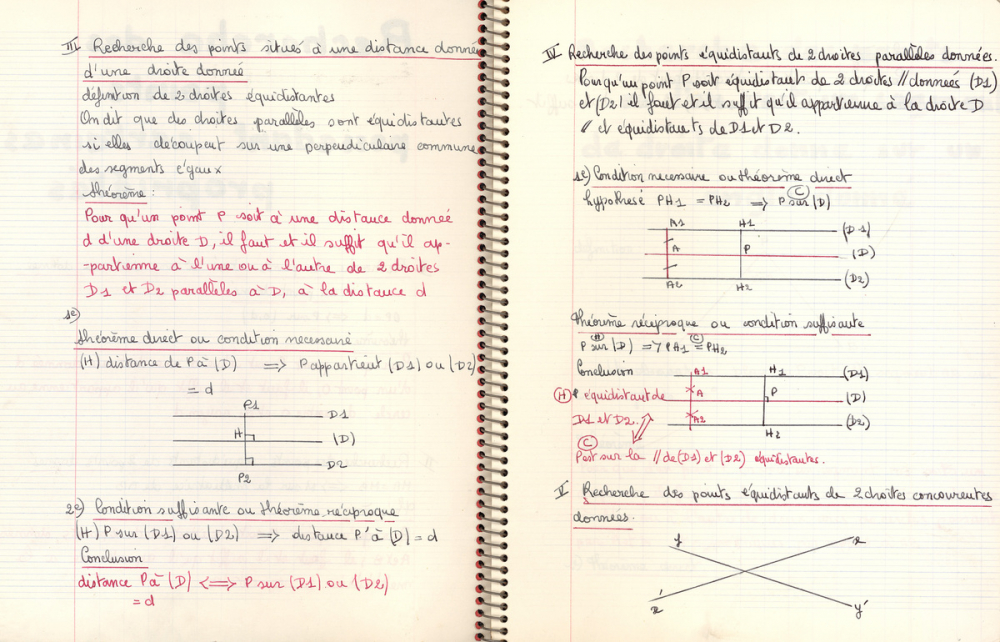 III Recherche des points situés à une distance donnée
d'une droite donnée
définition de 2 droites équidistantes
On dit que des droites parallèles sont équidistantes
si elles découpent sur une perpendiculaire commune
des segments égaux
théorème :
Pour qu'un point P soit à une distance donnée
d d'une droite D, il faut et il suffit qu'il ap-
-partienne à l'une ou à l'autre de 2 droites
D1 et D2 parallèles à D, à la distance d
1e)
théorème direct ou condition necessaire
(H) distance de P à (D) => P appartient (D1) ou (D2)
= d
P1
D1
H
(D)
D2
P2
2e) Condition suffisante ou théorème réciproque
(H) P sur (D1) ou (D2) => distance P à (D) = d
Conclusion
distance P à (D) <=> P sur (D1) ou (D2)
= d
IV Recherche des points équidistants de 2 droites parallèles données.
Pour qu'un point P soit équidistant de 2 droites // données (D1)
et (D2) il faut et il suffit qu'il appartienne à la droite D
// et équidistants de D1 et D2.
1e) Condition necessaire ou théorème direct
(C)
hypothèse PH1 = PH2 => P sur (D)
A1 H1 (D1)
A P (D)
A2 H2 (D2)
théorème réciproque ou condition suffisante
(H) (C)
P sur (D) => PH1 = PH2
Conclusion A1 H1 (D1)
(H) P équidistant de A P (D)
D1 et D2. A2 (D2)
H2
(C)
P est sur la // de (D1) et (D2) équidistantes.
V Recherche des points équidistants de 2 droites concourentes
données.
y x
x' y'